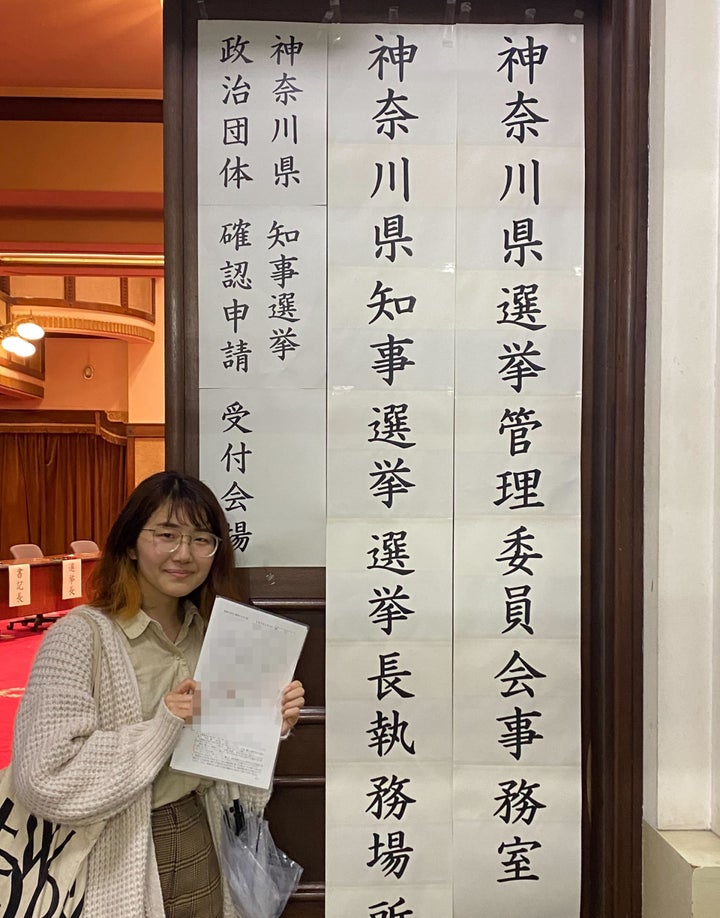 神奈川県選挙管理委員会事務室
神奈川県知事選挙選挙長執務場所
神奈川県 知事選挙
政治団体 確認申請 受付会場
書記長
選挙長